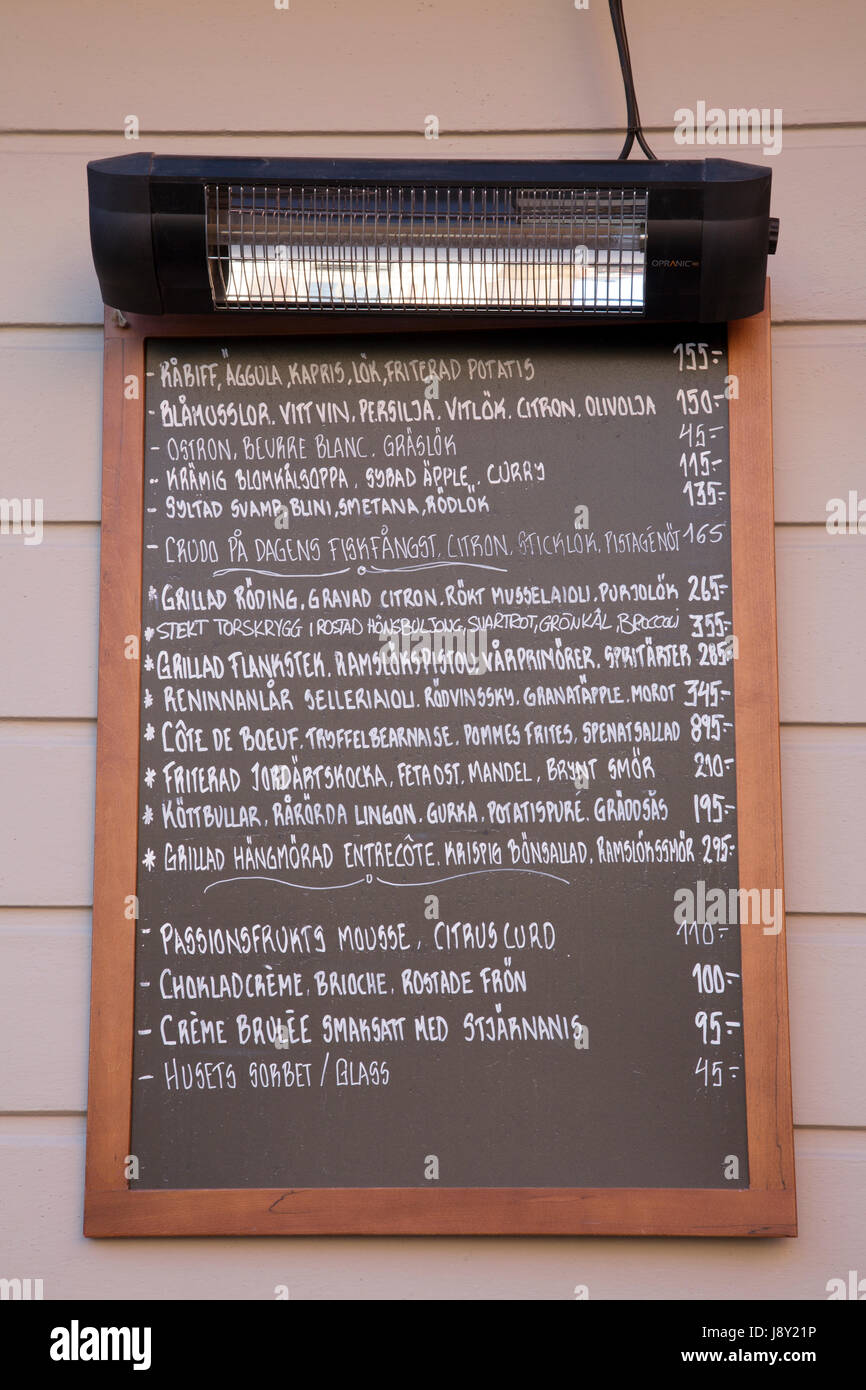 OPRANIC
- RÅBIFF, ÄGGULA, KAPRIS, LÖK, FRITERAD POTATIS 155:-
- BLÅMUSSLOR, VITT VIN, PERSILJA, VITLÖK, CITRON, OLIVOLJA 150:-
- OSTRON, BEURRE BLANC, GRÄSLÖK 45:-
- KRÄMIG BLOMKÅLSOPPA, SYRAD ÄPPLE, CURRY 115:-
- SYLTAD SVAMP, BLINI, SMETANA, RÖDLÖK 135:-
- CRUDO PÅ DAGENS FISKFÅNGST, CITRON, STICKLÖK, PISTAGENÖT 165
* GRILLAD RÖDING, GRAVAD CITRON, RÖKT MUSSELAIOLI, PURJOLÖK 265:-
* STEKT TORSKRYGG I ROSTAD HÖNSBULJONG, SVARTROT, GRÖNKÅL, BROCCOLI 355:-
* GRILLAD FLANKSTEK, RAMSLÖKSPISTOU, VÅRPRIMÖRER, SPRITÄRTER 285:-
* RENINNANLÅR SELLERIAIOLI, RÖDVINSSKY, GRANATÄPPLE, MOROT 345:-
* CÔTE DE BOEUF, TRYFFELBEARNAISE, POMMES FRITES, SPENATSALLAD 895:-
* FRITERAD JORDÄRTSKOCKA, FETAOST, MANDEL, BRYNT SMÖR 210:-
* KÖTTBULLAR, RÅRÖRDA LINGON, GURKA, POTATISPURÉ, GRÄDDSÅS 195:-
* GRILLAD HÄNGMÖRAD ENTRECÔTE, KRISPIG BÖNSALLAD, RAMSLÖKSSMÖR 295:-
- PASSIONSFRUKTS MOUSSE, CITRUSCURD 110:-
- CHOKLADCRÈME, BRIOCHE, ROSTADE FRÖN 100:-
- CRÈME BRULÉE SMAKSATT MED STJÄRNANIS 95:-
- HUSETS SORBET / GLASS 45:-
alamy
Image ID: J8Y21P
www.alamy.com